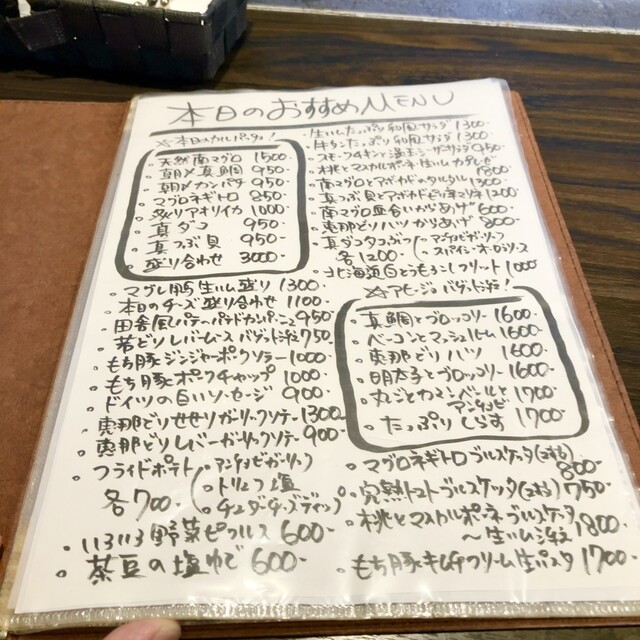 本日のおすすめMENU
※本日のカルパッチョ!
・天然南マグロ 1500-
・朝〆真鯛 950-
・朝〆カンパチ 950-
・マグロネギトロ 850-
・炙りアオリイカ 1000-
・真ダコ 950-
・真つぶ貝 950-
・盛り合わせ 3000-
・生ハム盛り 1300-
・本日のチーズ盛り合わせ 1100-
・田舎風パテ
950
・若どりレバームース バゲット添え 750
・もち豚ジンジャーポークソテー 1000-
・もち豚ポークチャップ 1000-
・ドイツの白いソーセージ 900-
・恵那どりせせりガーリックソテー 1300
・恵那どりレバーガーリックソテー 900-
・フライドポテト
各700
・アンチョビガーリック
・トリュフ塩
・チェダーチーズディップ
・いろいろ野菜ピクルス 600-
・茶豆の塩ゆで 600-
・生ハムたっぷり和風サラダ 1300-
・牛タンたっぷり和風サラダ 1300-
・スモークチキンと温玉シーザーサラダ 950-
・桃とマスカルポーネ 生ハム
1800
・南マグロとアボカドのタルタル 1300-
・真つぶ貝とアボカド
1200
・南マグロ血合いからあげ 600-
・恵那どりハツからあげ 800-
・真ダコタコぶつ
各1200
・アンチョビガーリック
・スパイシーオーロラソース
・北海道白とうもろこしフリット 1000
※アヒージョ バゲット添え!
・真鯛とブロッコリー 1600-
・ベーコンとマッシュルーム 1600-
・恵那どりハツ 1600-
・明太子とブロッコリー 1600-
・丸ごとカマンベールとアンチョビ 1700
・たっぷりしらす 1700-
・マグロネギトロブルスケッタ(2枚) 800-
・完熟トマトブルスケッタ(2枚) 750
・桃とマスカルポーネブルスケッタ
~生ハム添え 1800-
・もち豚キムチクリーム生パスタ 1700-